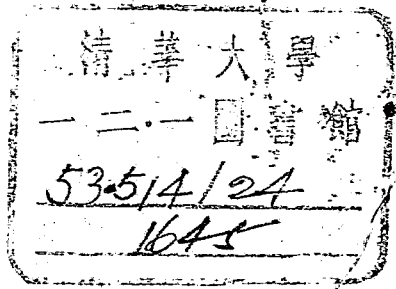 清華大學
一二·一圖書館
53.514/24
1645